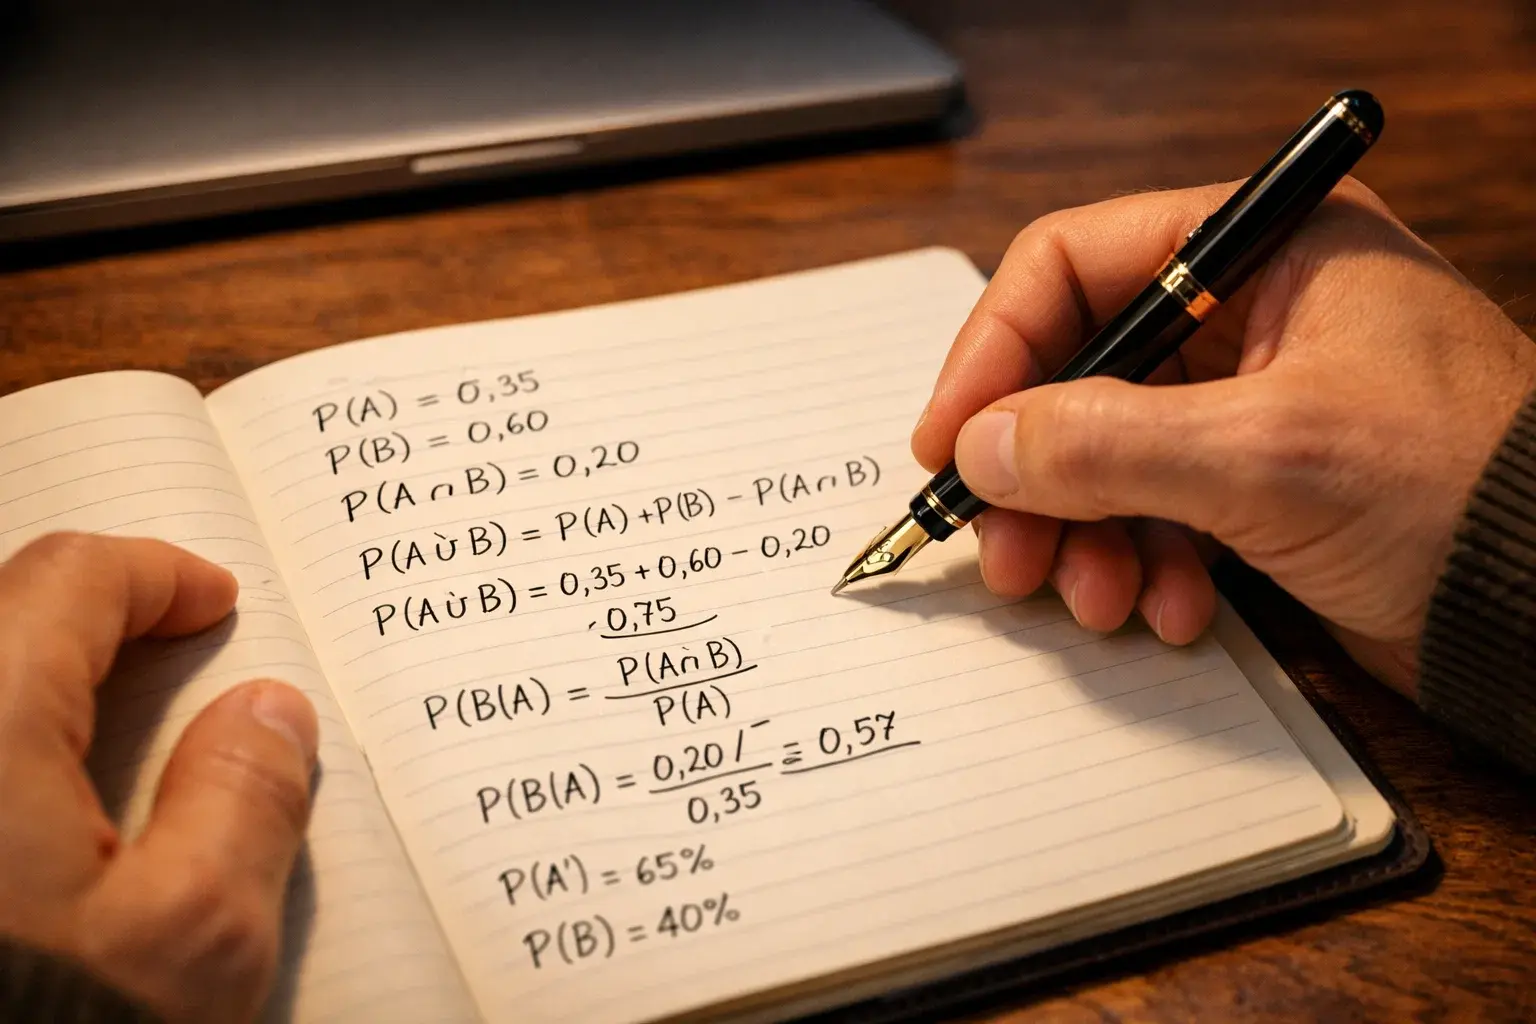 P(A) = 0,35
P(B) = 0,60
P(A ∩ B) = 0,20
P(A ∪ B) = P(A) + P(B) - P(A ∩ B)
P(A ∪ B) = 0,35 + 0,60 - 0,20
0,75
P(B(A) = P(A∩B)
P(A)
P(B(A) = 0,20 / ≡ 0,57
0,35
P(A') = 65%
P(B) = 40%